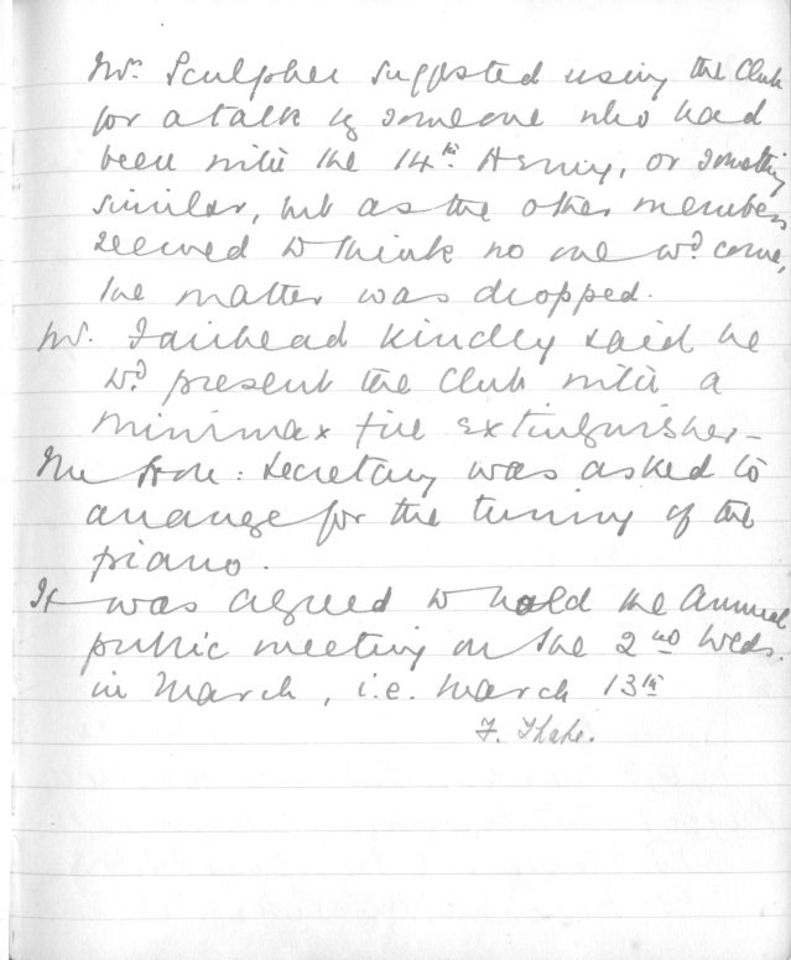 Mr. Sculpher suggested using the Club
for a talk by someone who had
been with the 14th Army, or something
similar, but as the other members
seemed to think no one wd. come,
the matter was dropped.
Mr. Fairhead kindly said he
wd. present the Club with a
Minimax fire extinguisher –
The Hon: Secretary was asked to
arrange for the tuning of the
piano.
It was agreed to hold the Annual
public meeting on the 2nd Weds.
in March, i.e. March 13th
F. Thake.